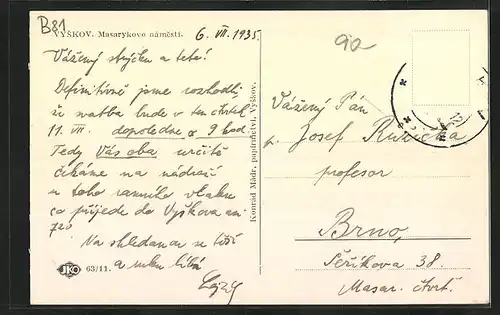 B81
VYŠKOV. Masarykovo náměstí.
6. VII. 1935
90
Vážený strýčku a teto!
Definitivně jsme rozhodli,
že svatba bude v ten čtvrtek
11. VII. dopoledne o 9 hod.
Tedy Vás oba určitě
čekáme na nádraží
u toho ranního vlaku
co přijede do Vyškova
720
Na shledanou se těší
a ruku líbá
JKO 63/11.
Konrád Mádr, papírnictví, Vyškov.
Vážený Pán
p. Josef Růžička
profesor
Brno,
Šeříkova 38
Masar. čtvrť.